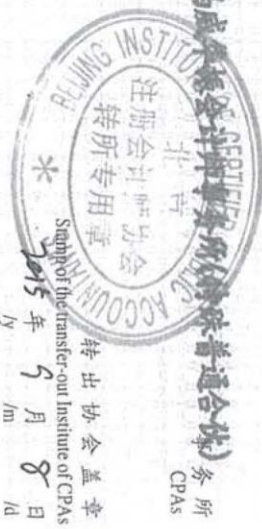 威华振会计师事务所(特殊普通合伙)
事务所
CPAs
BEIJING INSTITUTE OF CERTIFIED PUBLIC ACCOUNTANTS
北京
注册会计师协会
转所专用章
转出协会盖章
Stamp of the transfer-out Institute of CPAs
2015 年 9 月 8 日
/y /m /d